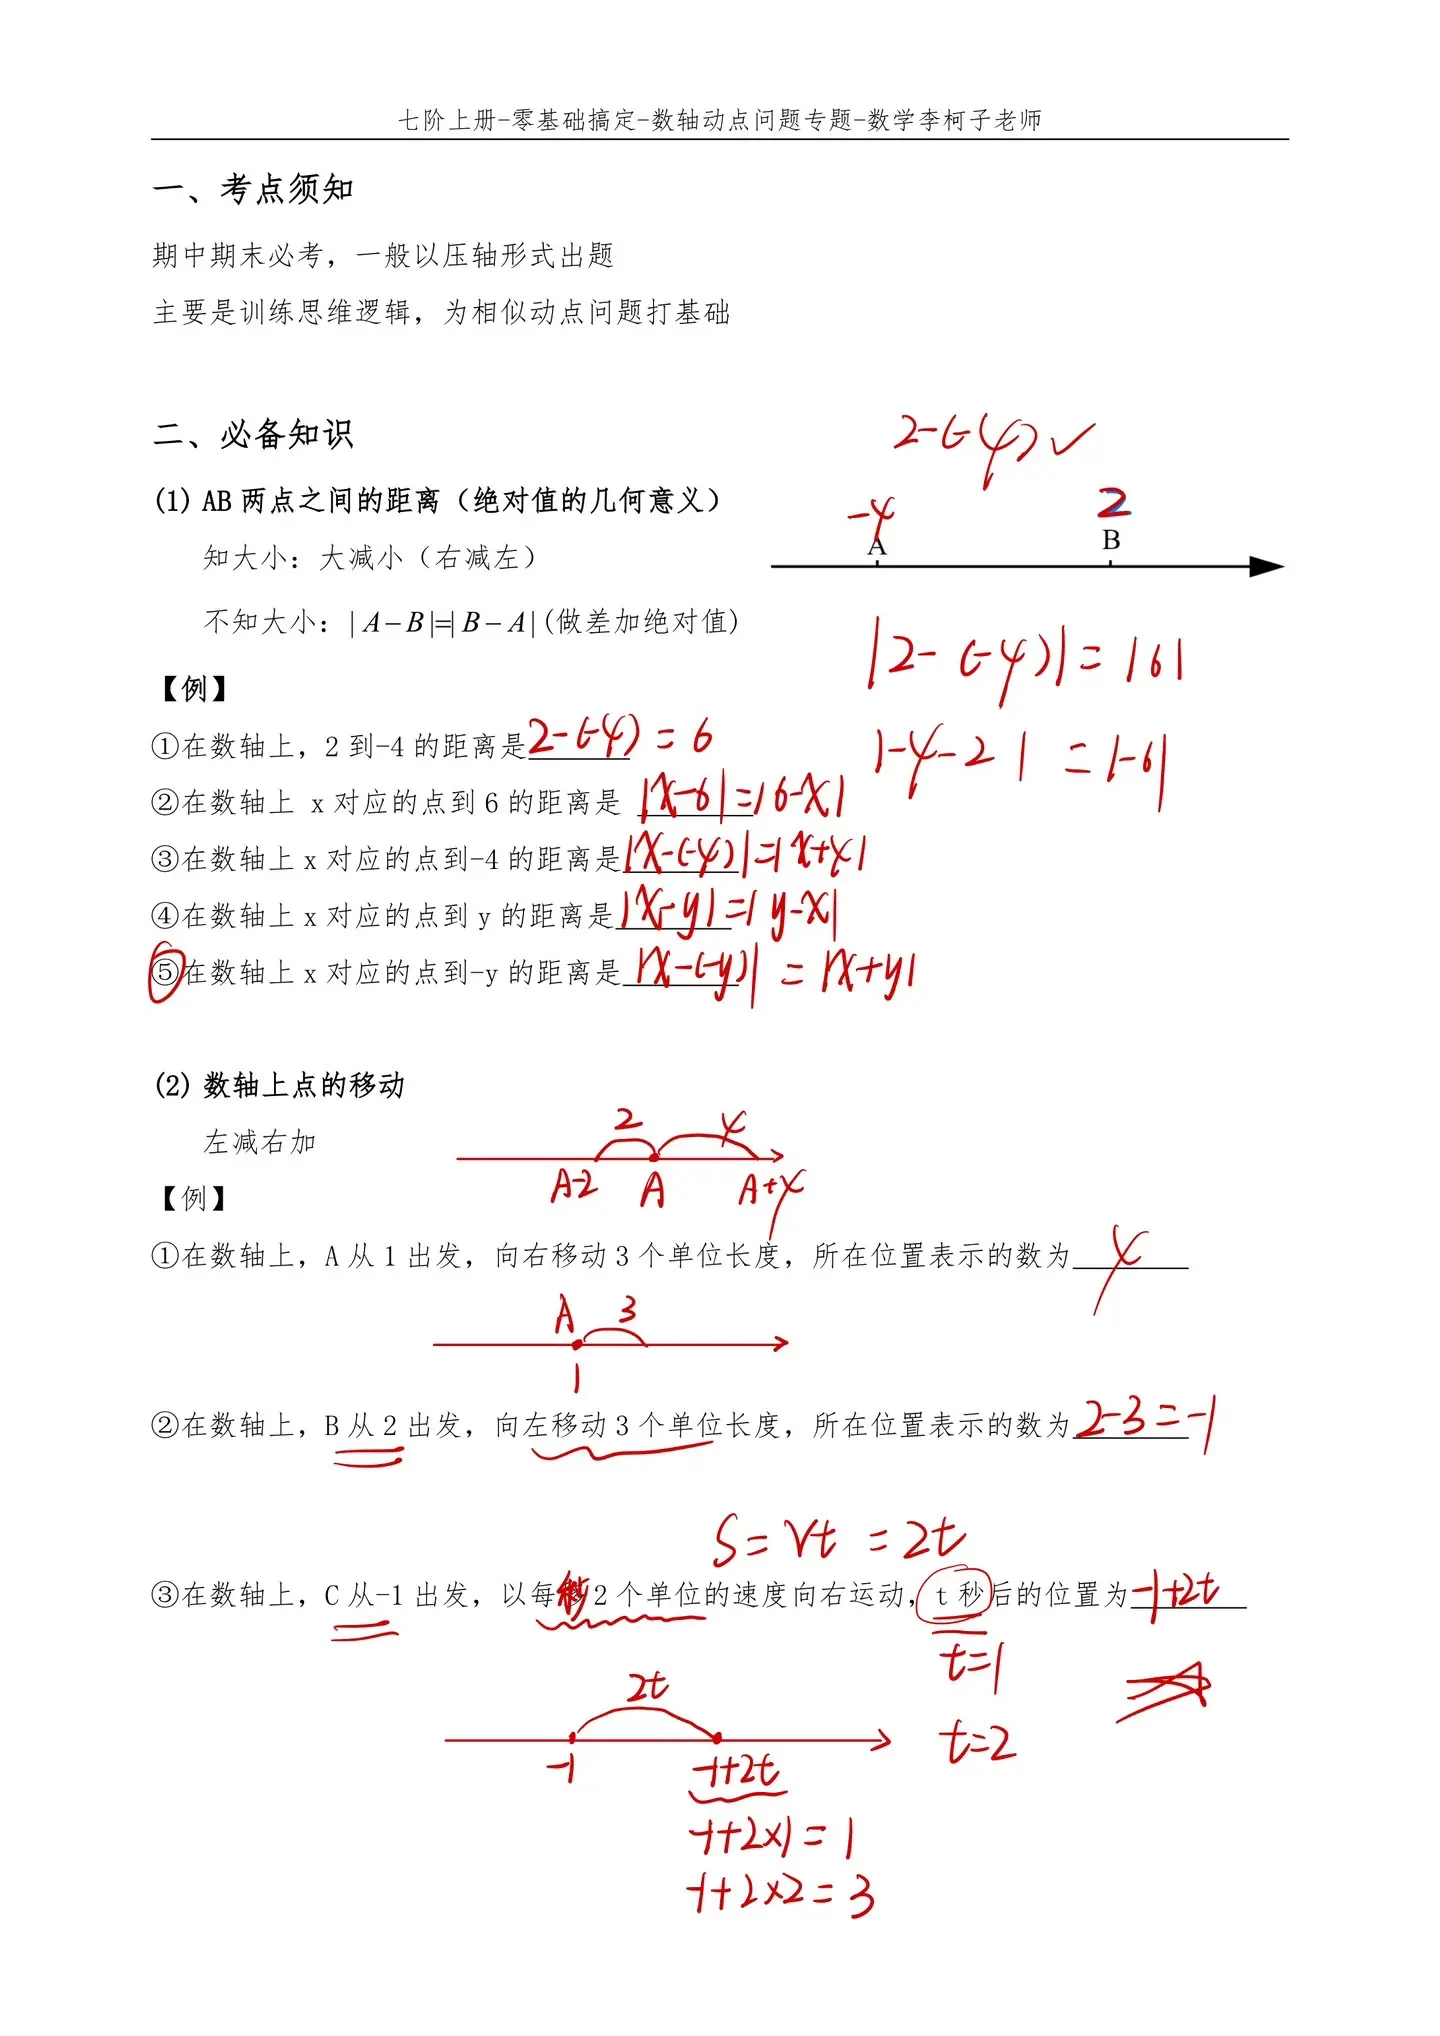 七阶上册-零基础搞定-数轴动点问题专题-数学李柯子老师
一、考点须知
期中期末必考，一般以压轴形式出题
主要是训练思维逻辑，为相似动点问题打基础
二、必备知识
2-(-4)✓
(1) AB两点之间的距离（绝对值的几何意义）
-4 2
A B
知大小：大减小（右减左）
不知大小：|A-B|=|B-A|(做差加绝对值)
|2-(-4)|=|6|
【例】
①在数轴上，2到-4的距离是2-(-4)=6
|-4-2|=|-6|
②在数轴上 x对应的点到6的距离是 |x-6|=|6-x|
③在数轴上x对应的点到-4的距离是|x-(-4)|=|x+4|
④在数轴上x对应的点到y的距离是|x-y|=|y-x|
⑤在数轴上x对应的点到-y的距离是|x-(-y)|=|x+y|
(2) 数轴上点的移动
左减右加
2 4
A-2 A A+4
【例】
①在数轴上，A从1出发，向右移动3个单位长度，所在位置表示的数为4
A 3
1
②在数轴上，B从2出发，向左移动3个单位长度，所在位置表示的数为2-3=-1
S=Vt=2t
③在数轴上，C从-1出发，以每秒2个单位的速度向右运动，t秒后的位置为-1+2t
t=1
2t
t=2
-1 -1+2t
-1+2×1=1
-1+2×2=3